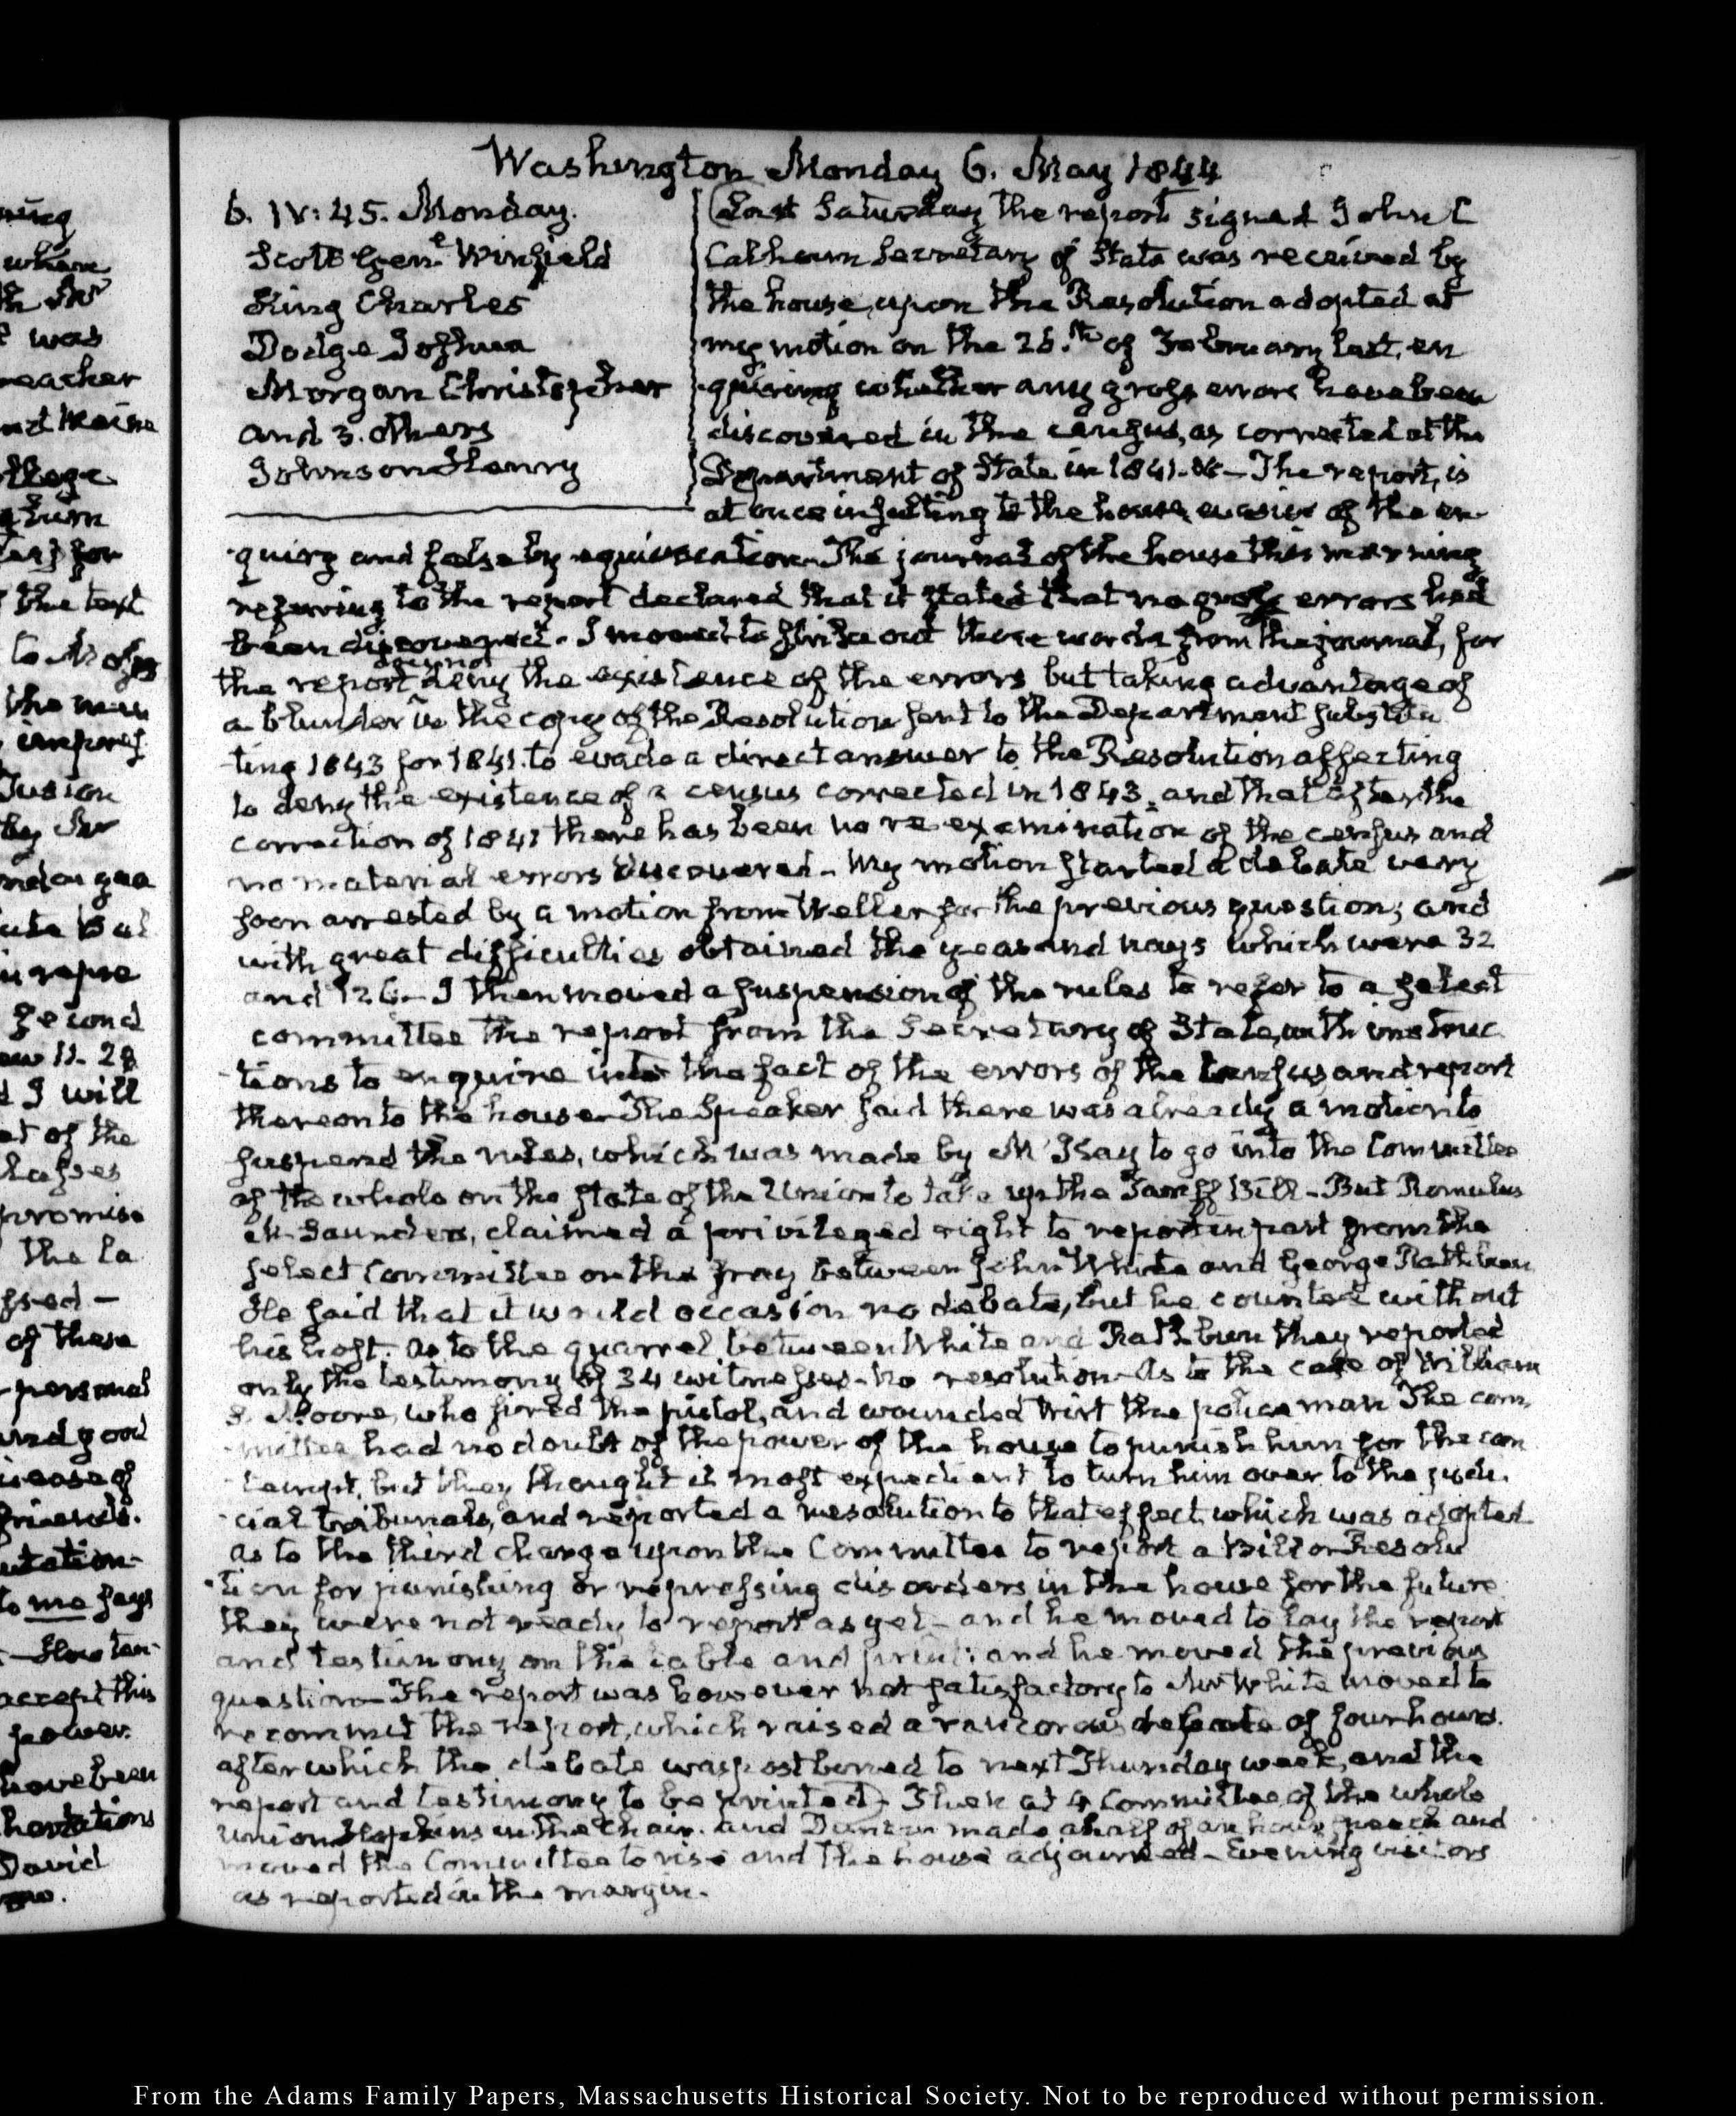 Washington Monday 6. May 1844
6. IV:45. Monday.
Scott Genl. Winfield
King Charles
Dodge Joshua
Morgan Christopher
and 3. others
Johnson Henry
(Last Saturday the report signed John C
Calhoun Secretary of State was received by
the house, upon the Resolution adopted at
my motion on the 26.th of February last, en
quiring whether any gross errors have been
discovered in the census, as corrected at the
Department of State in 1841. &c— The report, is
at once insulting to the house, evasive of the en-
quiry and false by equivocation. The journal of the house this morning
referring to the report declared that it stated that no gross errors had
been discovered. I moved to strike out these words from the journal, for
the report does not deny the existence of the errors but taking advantage of
a blunder in the copy of the Resolution sent to the Department substitu
ting 1843 for 1841. to evade a direct answer to the Resolution affecting
to deny the existence of a census corrected in 1843, and that after the
correction of 1841 there has been no re-examination of the census and
no material errors discovered. My motion started a debate very
soon arrested by a motion from Weller for the previous question; and
with great difficulties obtained the yeas and nays which were 32
and 126— I then moved a suspension of the rules to refer to a select
committee the report from the Secretary of State, with instruc
tions to enquire into the fact of the errors of the Census and report
thereon to the house— The Speaker said there was already a motion to
suspend the rules, which was made by M'Kay to go into the Committee
of the whole on the state of the Union to take up the Tariff Bill— But Romulus
M. Saunders, claimed a privileged right to report in part from the
select Committee on the fray between John White and George Rathbun
He said that it would occasion no debate, but he counted without
his host. As to the quarrel between White and Rathbun they reported
only the testimony of 34 witnesses— no resolution— As to the case of William
S. Moore, who fired the pistol, and wounded Wirt the police man The com,
mittee had no doubt of the power of the house to punish him for the con
tempt, but they thought it most expedient to turn him over to the judi.
cial tribunals, and reported a resolution to that effect, which was adopted
as to the third charge upon the Committee to report a Bill or Resolu
tion for punishing or repressing disorders in the house for the future
they were not ready to report as yet— and he moved to lay the report
and testimony on the table and print: and he moved the previous
question— The report was however not satisfactory to Mr White moved to
recommit the report, which raised a rancorous debate of four hours.
after which the debate was postponed to next Thursday week, and the
report and testimony to be printed) Then at 4 Committee of the whole
Union Hopkins in the chair. and Duncan made a half of an hour speech and
moved the Committee to rise and the house adjourned— Evening visitors
as reported in the margin.
From the Adams Family Papers, Massachusetts Historical Society. Not to be reproduced without permission.